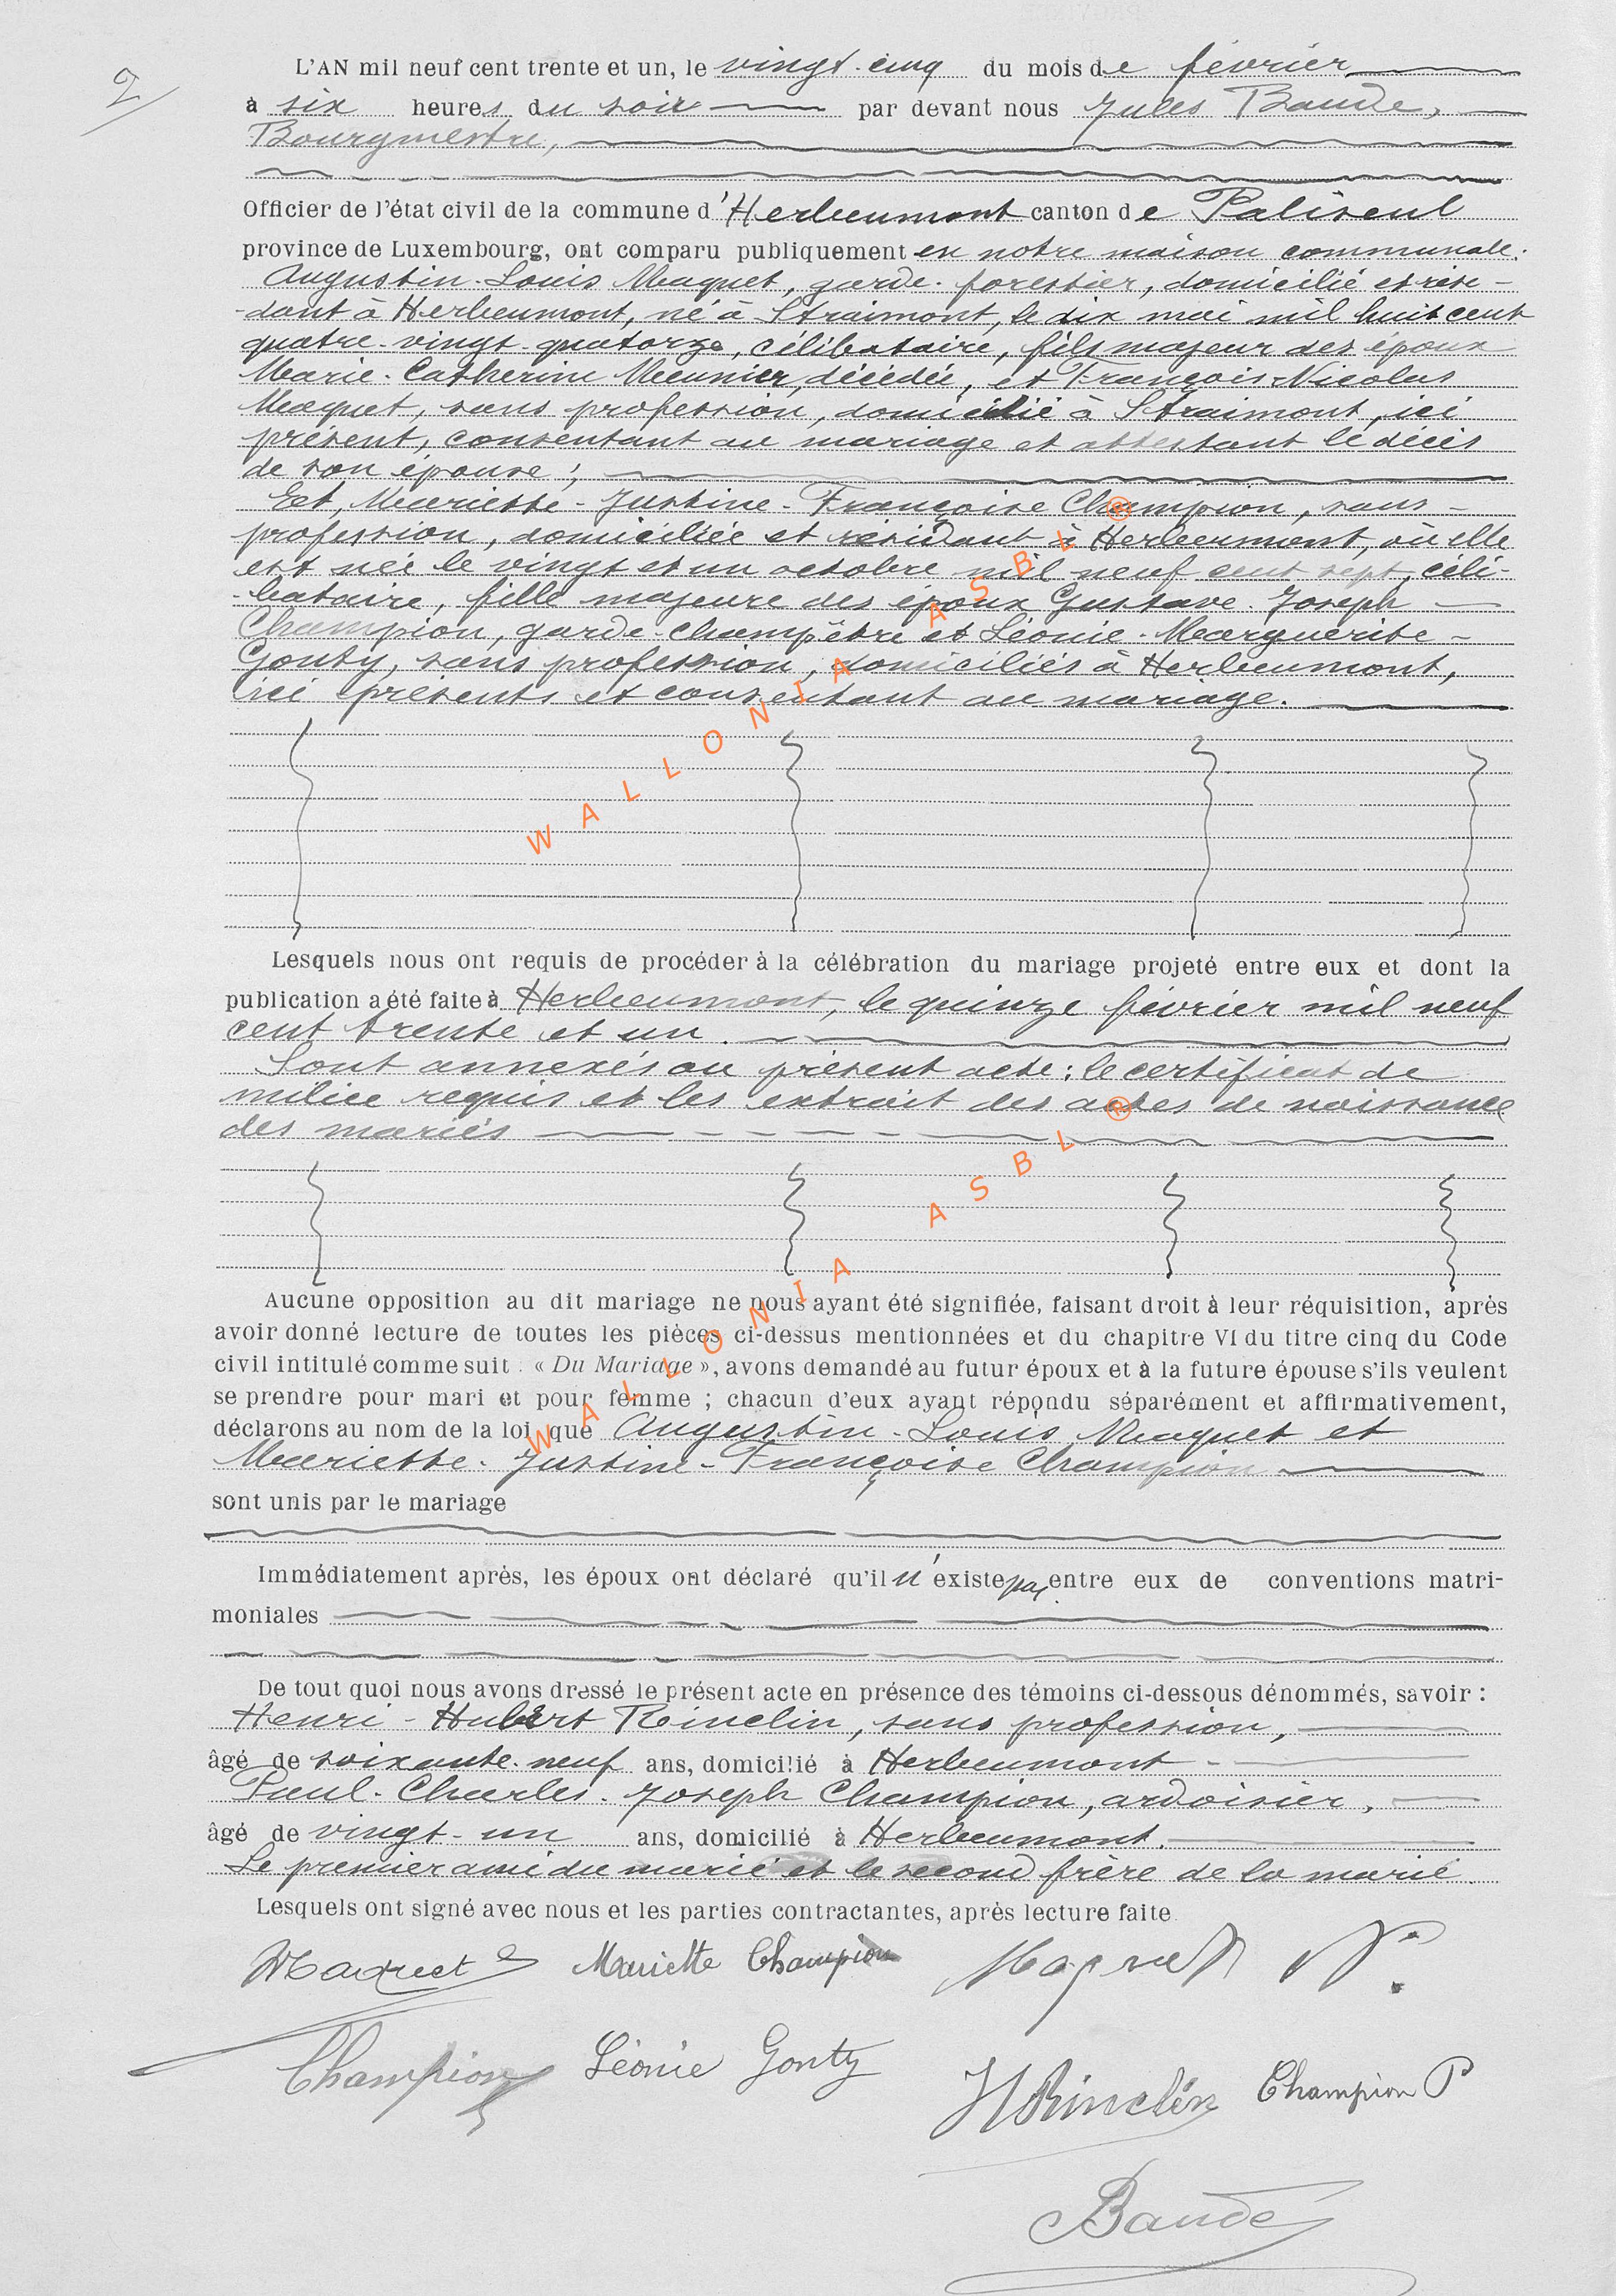 2/
L'AN mil neuf cent trente et un, le vingt-cinq du mois de février
à six heures du soir par devant nous Jules Baude,
Bourgmestre,
Officier de l'état civil de la commune d'Herbeumont canton de Paliseul
province de Luxembourg, ont comparu publiquement en notre maison communale:
Augustin-Louis Maquet, garde-forestier, domicilié et rési-
-dant à Herbeumont, né à Straimont, le dix mai mil huit cent
quatre-vingt-quatorze, célibataire, fils majeur des époux
Marie-Catherine Meunier, décédée, et François-Nicolas
Maquet, sans profession, domicilié à Straimont, ici
présent, consentant au mariage et attestant le décès
de son épouse;
Et, Mariette-Justine-Françoise Champion, sans
profession, domiciliée et résidant à Herbeumont, où elle
est née le vingt et un octobre mil neuf cent sept, céli-
-bataire, fille majeure des époux Gustave-Joseph
Champion, garde-champêtre et Léonie-Marguerite-
Gonty, sans profession, domiciliés à Herbeumont,
ici présents et consentant au mariage.
Lesquels nous ont requis de procéder à la célébration du mariage projeté entre eux et dont la
publication a été faite à Herbeumont, le quinze février mil neuf
cent trente et un.
Sont annexés au présent acte: le certificat de
milice requis et les extrait des actes de naissance
des mariés
Aucune opposition au dit mariage ne nous ayant été signifiée, faisant droit à leur réquisition, après
avoir donné lecture de toutes les pièces ci-dessus mentionnées et du chapitre VI du titre cinq du Code
civil intitulé comme suit : « Du Mariage », avons demandé au futur époux et à la future épouse s'ils veulent
se prendre pour mari et pour femme ; chacun d'eux ayant répondu séparément et affirmativement,
déclarons au nom de la loi que Augustin-Louis Maquet et
Mariette-Justine-Françoise Champion
sont unis par le mariage
Immédiatement après, les époux ont déclaré qu'il n'existe pas entre eux de conventions matri-
moniales
De tout quoi nous avons dressé le présent acte en présence des témoins ci-dessous dénommés, savoir :
Henri-Hubert Rinclin, sans profession,
âgé de soixante-neuf ans, domicilié à Herbeumont
Paul-Charles-Joseph Champion, ardoisier,
âgé de vingt-un ans, domicilié à Herbeumont.
Le premier ami du marié et le second frère de la marié.
Lesquels ont signé avec nous et les parties contractantes, après lecture faite
Maquet Mariette Champion Maquet N.
Champion Léonie Gonty HRinclin Champion P
Baude
WALLONIA ASBL ®
WALLONIA ASBL ®